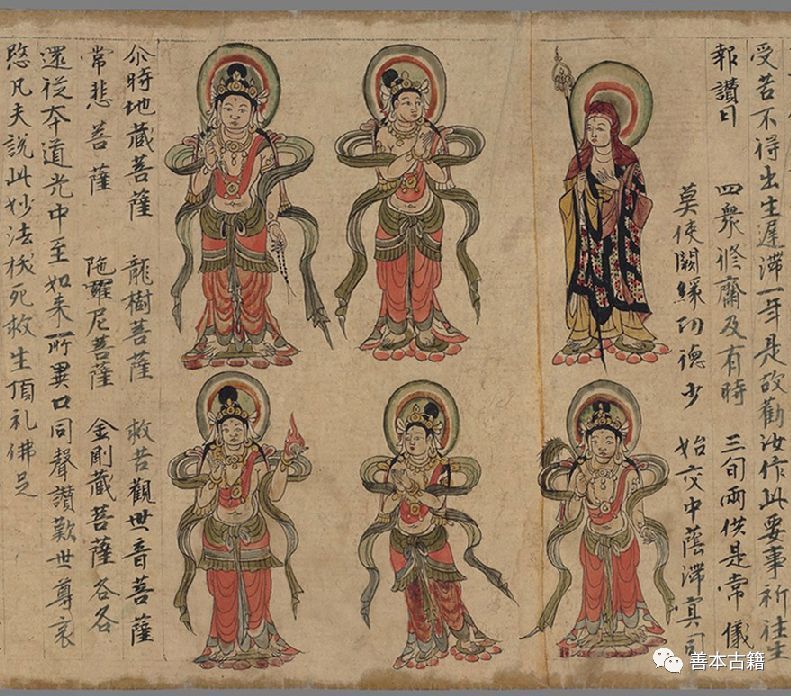 受苦不得出生遲滯一年是故勸汝作此要事祈往生
報讚曰 四眾修齋及有時 三旬兩供是常儀
莫使闕緣功德少 始交中蔭滯冥司
尒時地藏菩薩 龍樹菩薩 救苦觀世音菩薩
常悲菩薩 陁羅尼菩薩 金剛藏菩薩各各
還從本道光中至如来所異口同聲讚歎世尊哀
愍凡夫說此妙法拔死救生頂礼佛足
善本古籍